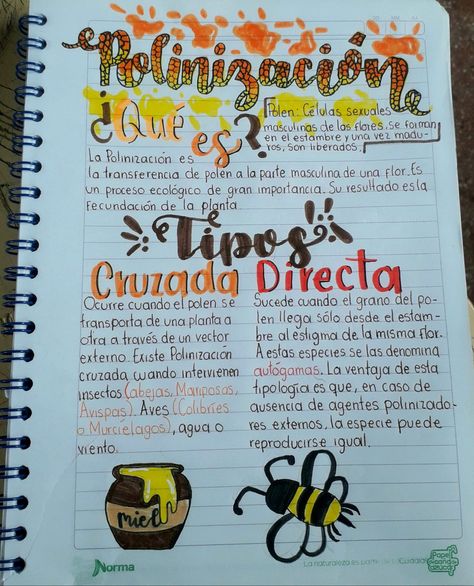 Polinización
¿Qué es?
Polen: Células sexuales
masculinas de las flores, se forman
en el estambre y una vez madu-
ros, son liberados.
La Polinización es
la transferencia de polen a la parte masculina de una flor. Es
un proceso ecológico de gran importancia. Su resultado es la
fecundación de la planta.
Tipos
Cruzada
Ocurre cuando el polen se
transporta de una planta a
otra a través de un vector
externo. Existe Polinización
cruzada cuando intervienen
insectos (abejas, Mariposas,
Avispas). Aves (Colibríes
o Murciélagos), agua o
viento.
Directa
Sucede cuando el grano del po-
len llega sólo desde el estam-
bre al estigma de la misma flor.
A estas especies se las denomina
autógamas. La ventaja de esta
tipología es que, en caso de
ausencia de agentes polinizado-
res externos, la especie puede
reproducirse igual.
Miel
Norma
La naturaleza es